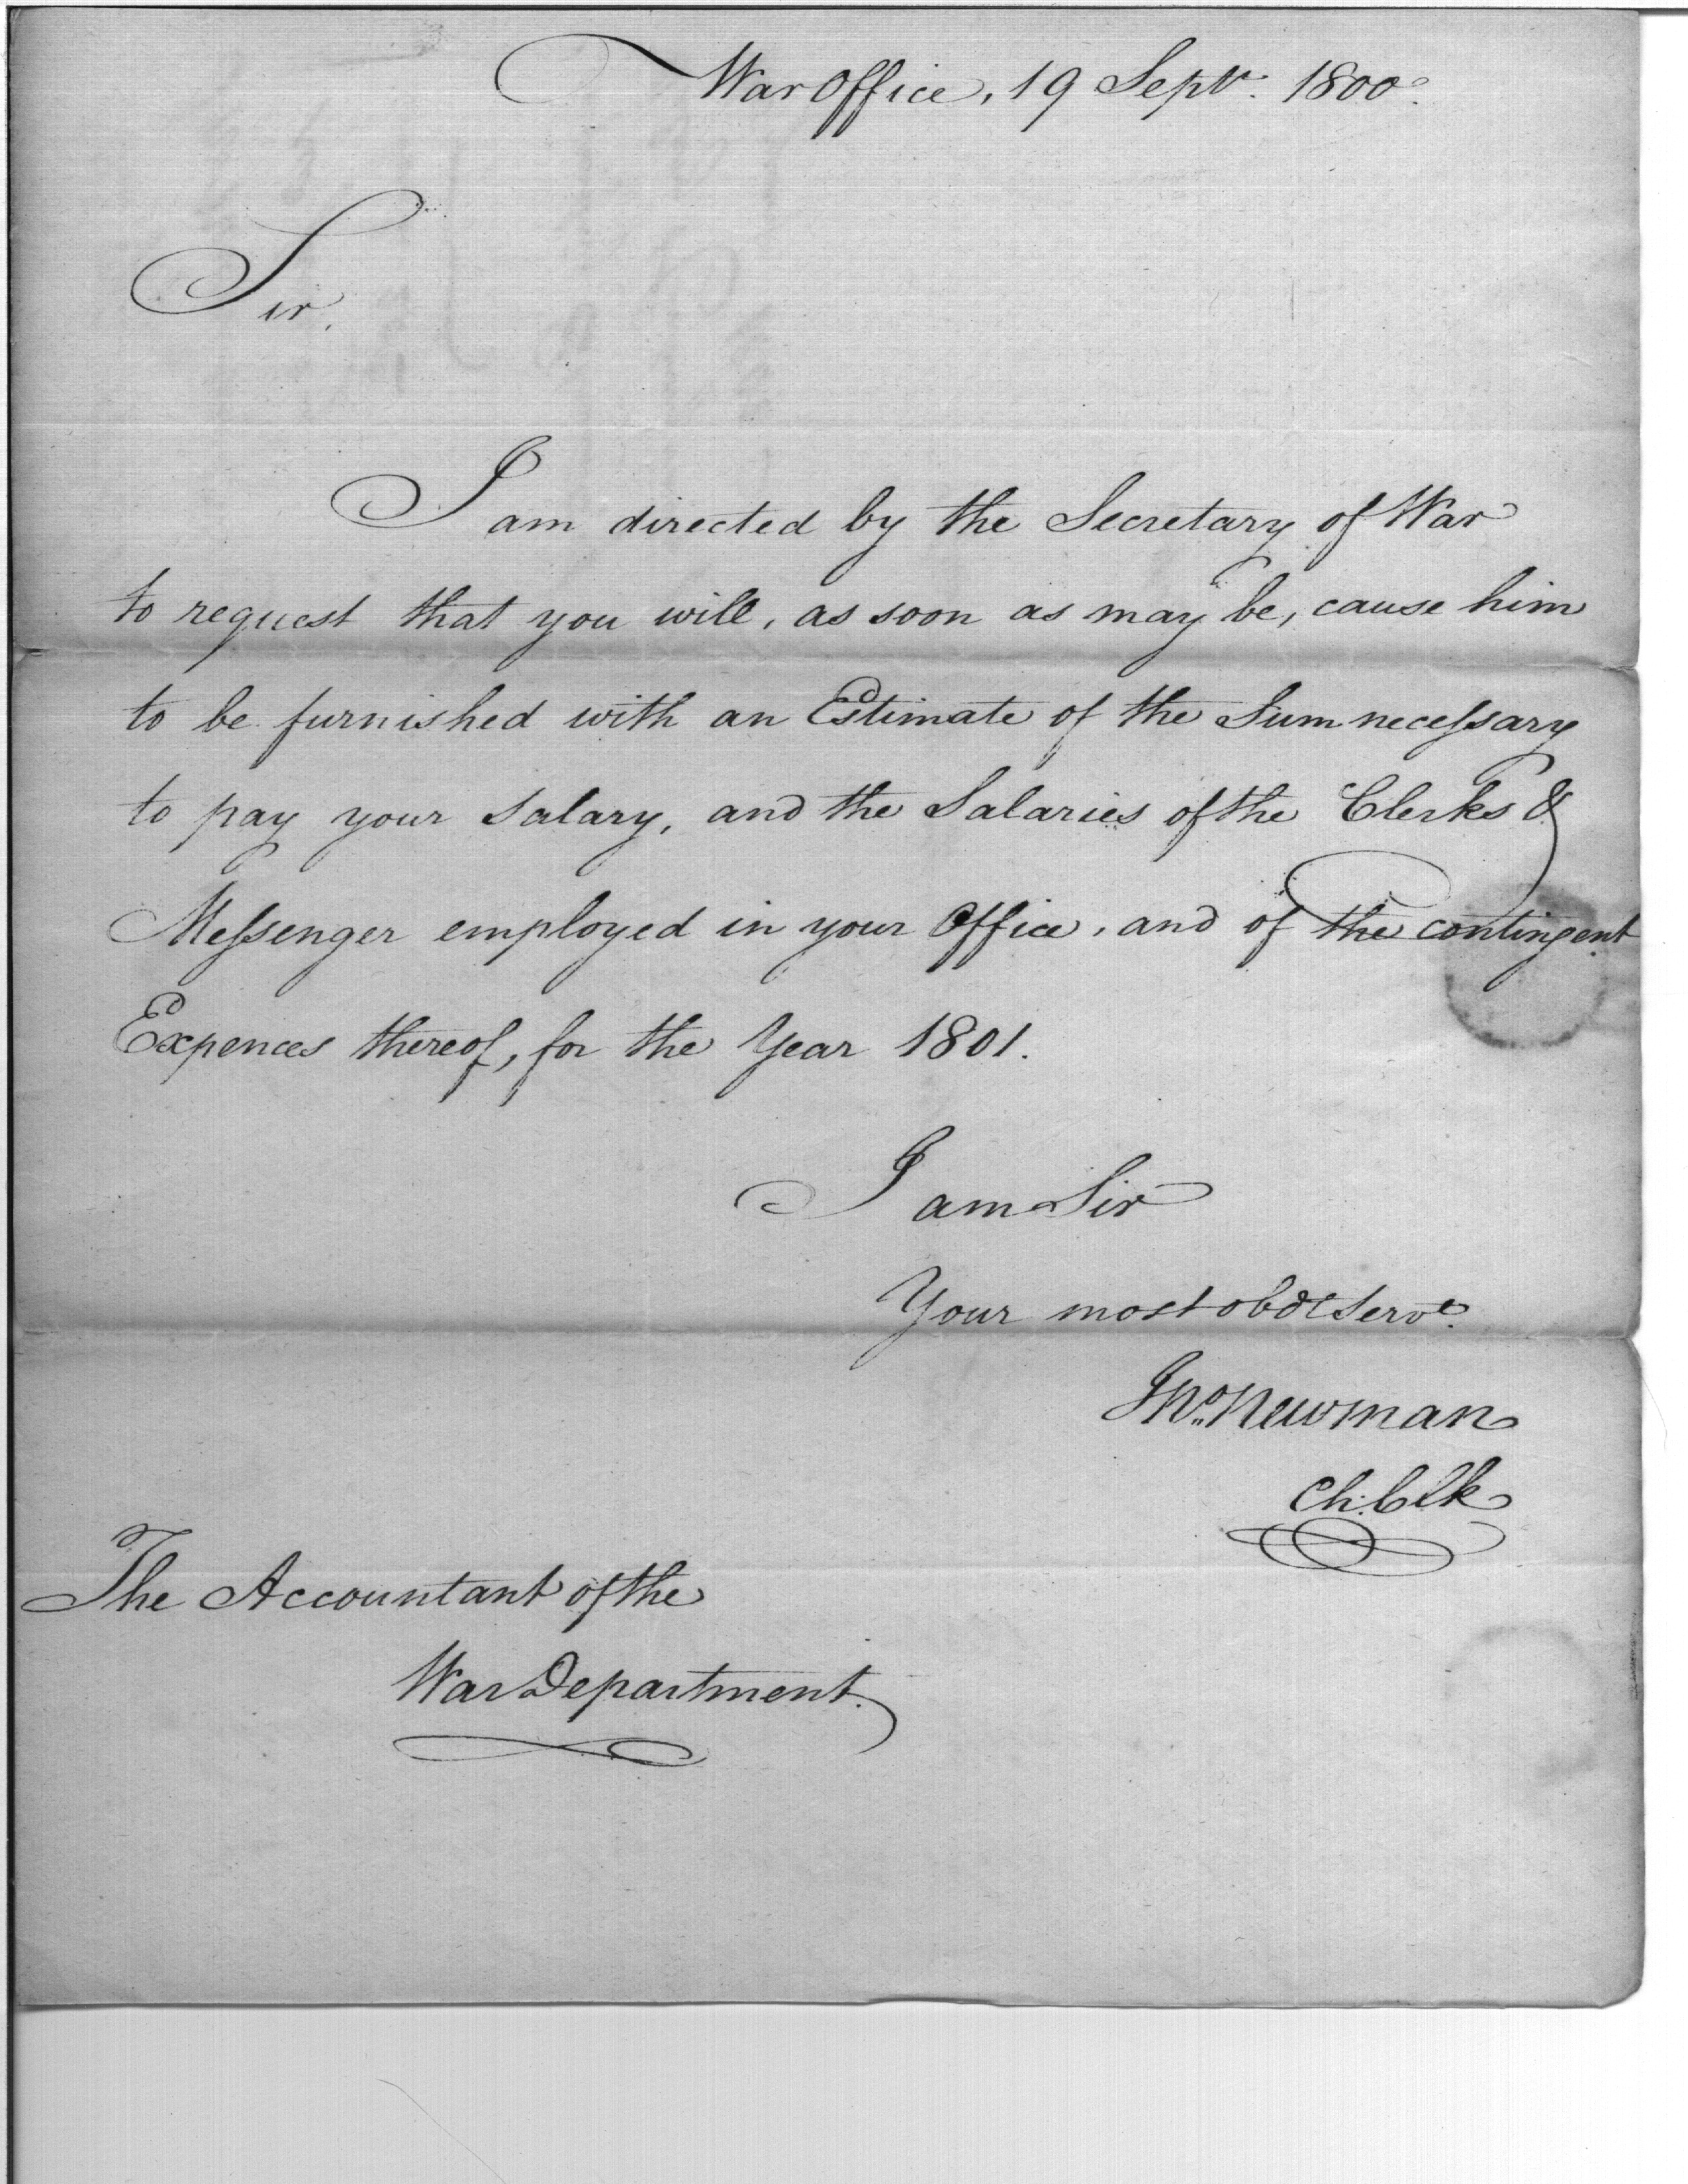 War Office, 19 Septr. 1800.
Sir,
I am directed by the Secretary of War
to request that you will, as soon as may be, cause him
to be furnished with an Estimate of the Sum necessary
to pay your Salary, and the Salaries of the Clerks &
Messenger employed in your Office, and of the contingent
Expences thereof, for the Year 1801.
I am Sir
Your most obdt Servt.
Jno. Newman
Ch. Clk
The Accountant of the
War Department.